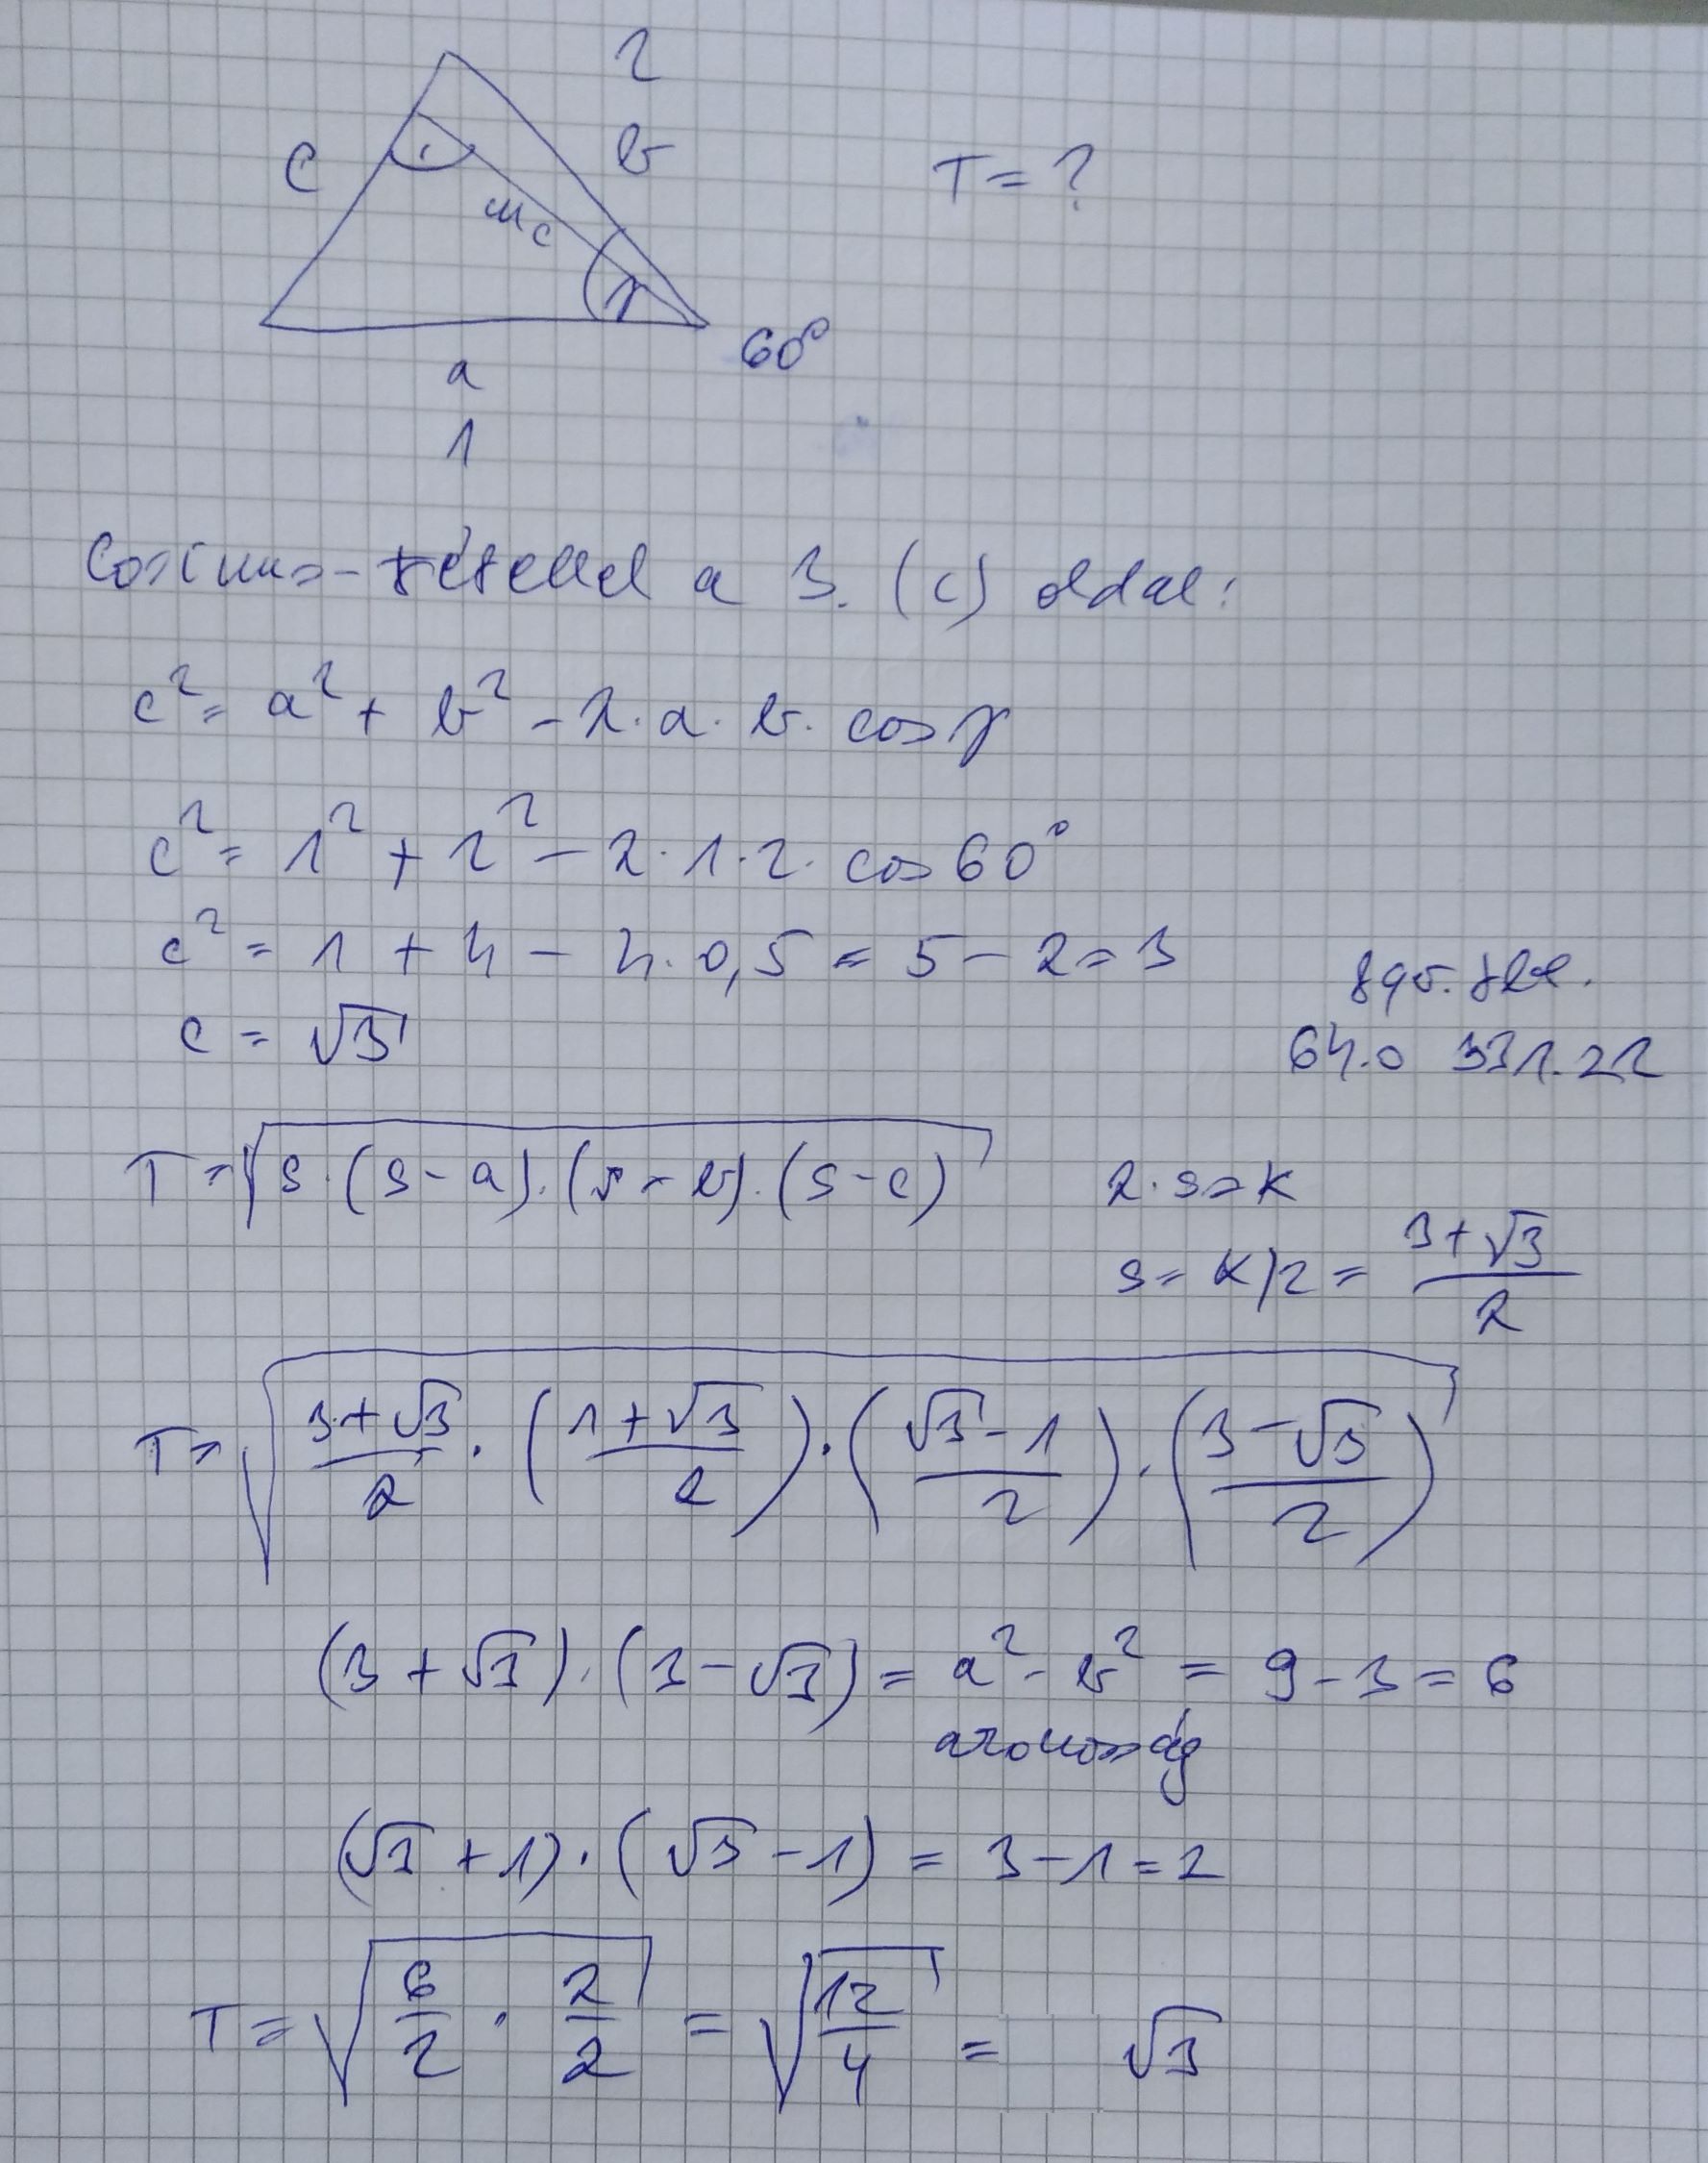 2
c b T = ?
m_c
γ 60°
a
1
Cosinus-tétellel a 3. (c) oldal:
c² = a² + b² - 2·a·b·cosγ
c² = 1² + 2² - 2·1·2·cos60°
c² = 1 + 4 - 4·0,5 = 5 - 2 = 3
c = √3
64.0 331.22
T = √(s·(s-a)·(s-b)·(s-c)) 2·s=K
s = K/2 = (3+√3)/2
T = √((3+√3)/2 · ((1+√3)/2) · ((√3-1)/2) · ((3-√3)/2))
(3+√3)·(3-√3) = a²-b² = 9-3 = 6
azonosság
(√3+1)·(√3-1) = 3-1=2
T = √(6/2 · 2/2) = √(12/4) = √3